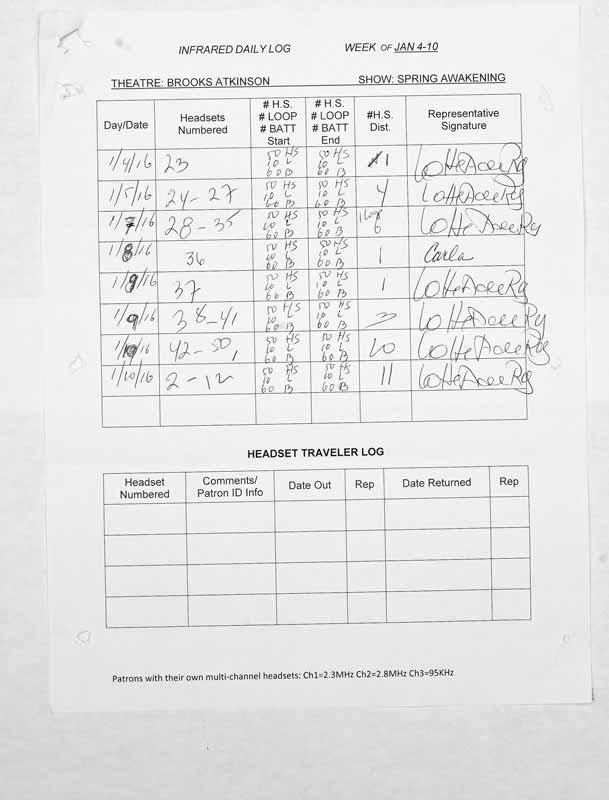 INFRARED DAILY LOG WEEK OF JAN 4-10
THEATRE: BROOKS ATKINSON SHOW: SPRING AWAKENING
Day/Date Headsets Numbered # H.S. # LOOP # BATT Start # H.S. # LOOP # BATT End #H.S. Dist. Representative Signature
1/4/16 23 50 HS 10 L 60 B 50 HS 10 L 60 B 1
1/5/16 24-27 50 HS 10 L 60 B 50 HS 10 L 60 B 4
1/7/16 28-35 50 HS 10 L 60 B 50 HS 10 L 60 B 1 Loop 6
1/8/16 36 50 HS 10 L 60 B 50 HS 10 L 60 B 1 Carla
1/9/16 37 50 HS 10 L 60 B 50 HS 10 L 60 B 1
1/9/16 38-41 50 HS 10 L 60 B 50 HS 10 L 60 B 3
1/10/16 42-50, 1 50 HS 10 L 60 B 50 HS 10 L 60 B 10
1/10/16 2-12 50 HS 10 L 60 B 50 HS 10 L 60 B 11
HEADSET TRAVELER LOG
Headset Numbered Comments/ Patron ID Info Date Out Rep Date Returned Rep
Patrons with their own multi-channel headsets: Ch1=2.3MHz Ch2=2.8MHz Ch3=95KHz